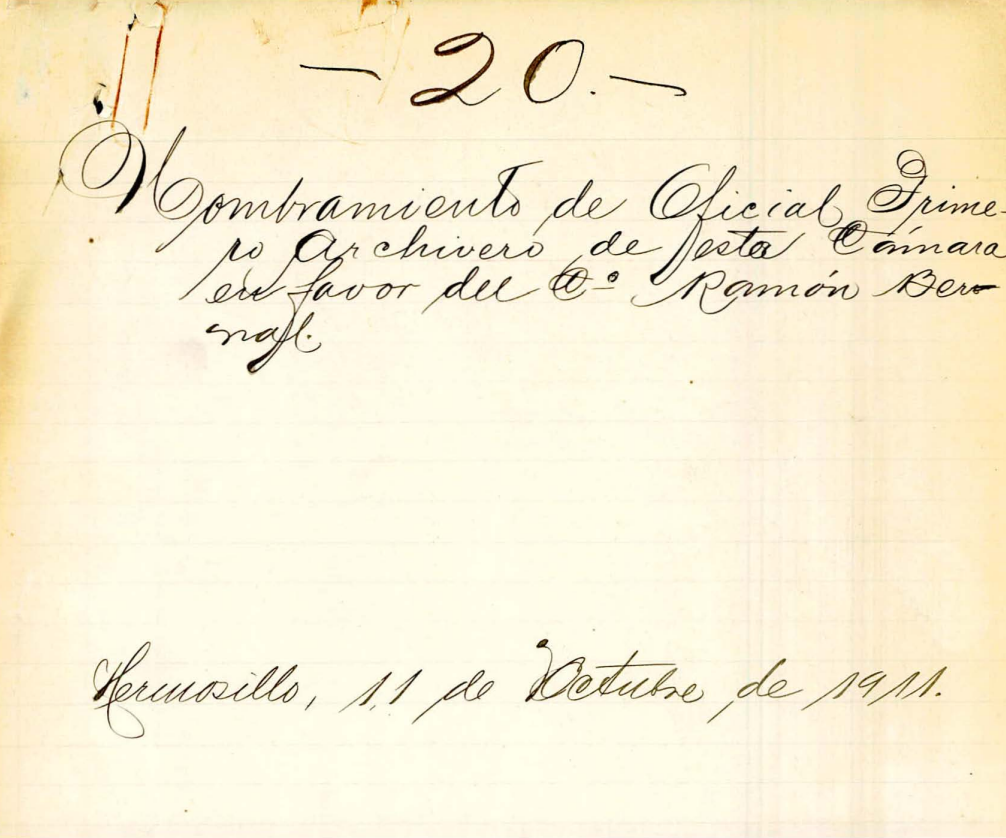 - 20. -
Nombramiento de Oficial Prime-
ro Archivero de esta Cámara
en favor del C.º Ramón Ber-
nal.
Hermosillo, 11 de Octubre de 1911.